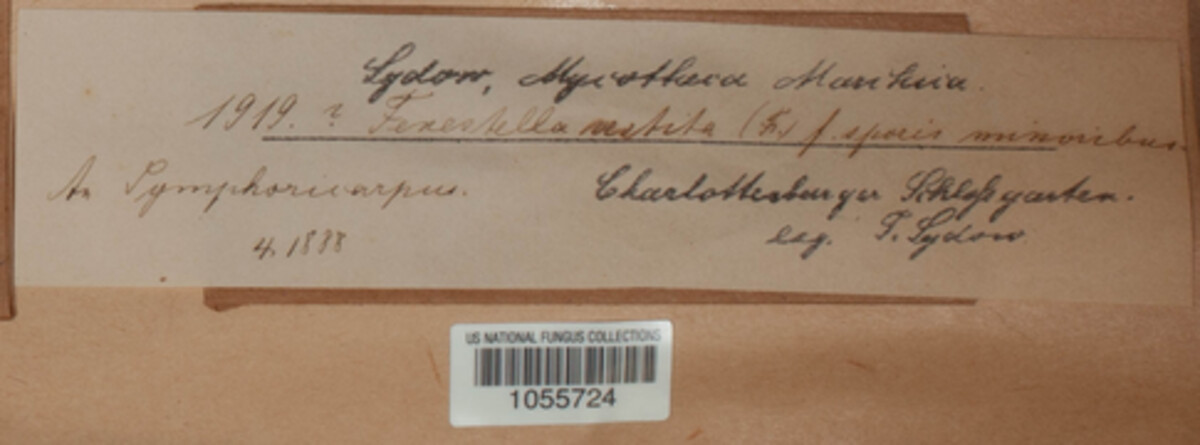 Sydow, Mycotheca Marchica.
1919. ? Fenestella vestita (Fr.) f. sporis minoribus.
An Symphoricarpus.
Charlottenburger Schloßgarten.
4. 1888
leg. P. Sydow
US NATIONAL FUNGUS COLLECTIONS
1055724